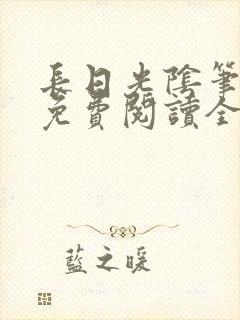 長日光陰筆
免費閱讀全
藍之暖